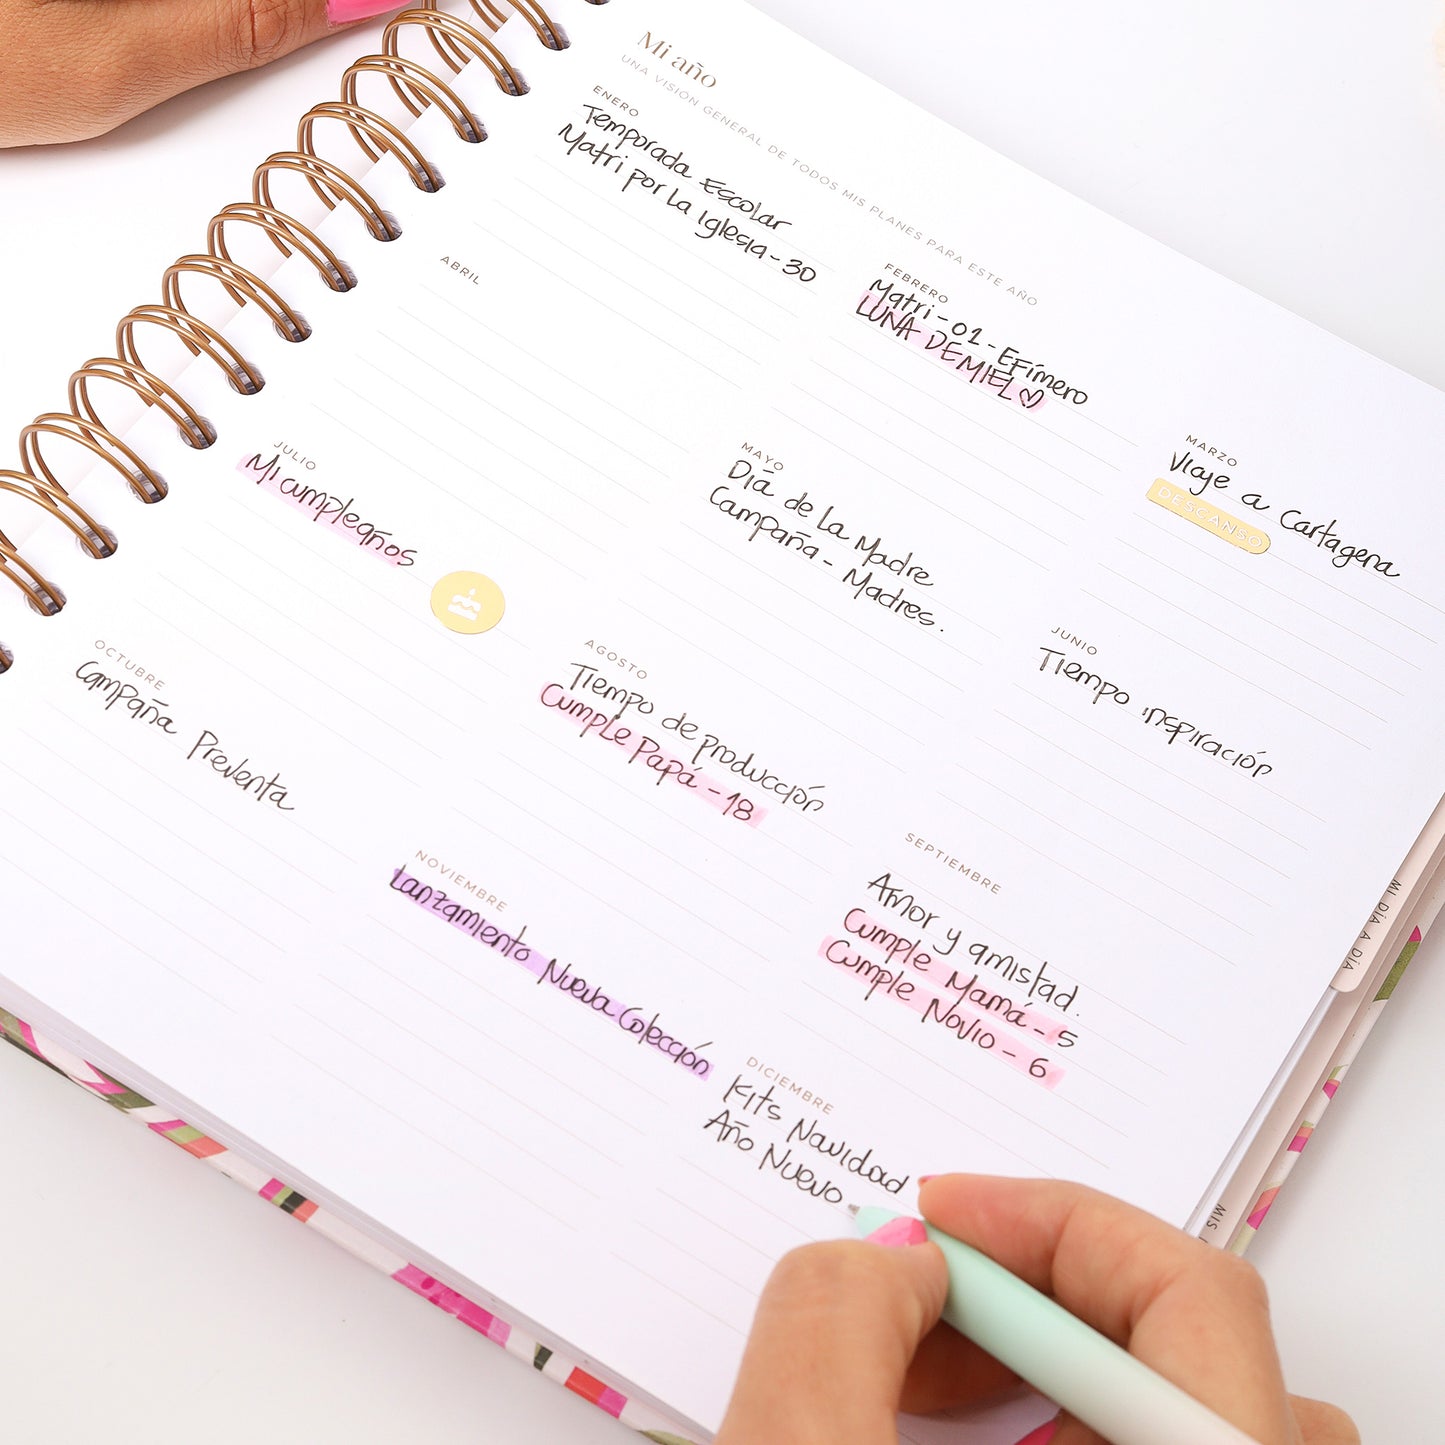 Mi año
UNA VISIÓN GENERAL DE TODOS MIS PLANES PARA ESTE AÑO
ENERO
Temporada Escolar
Matri por La Iglesia - 30
FEBRERO
Matri - 01 - Efímero
LUNA DE MIEL
MARZO
Viaje a Cartagena
DESCANSO
ABRIL
MAYO
Día de La Madre
Campaña - Madres.
JUNIO
Tiempo inspiración
JULIO
Mi cumpleaños
AGOSTO
Tiempo de producción
Cumple Papá - 18
SEPTIEMBRE
Amor y amistad.
Cumple Mamá - 5
Cumple Novio - 6
OCTUBRE
Campaña Preventa
NOVIEMBRE
Lanzamiento Nueva Colección
DICIEMBRE
Kits Navidad
Año Nuevo
MI DÍA A DÍA
MIS